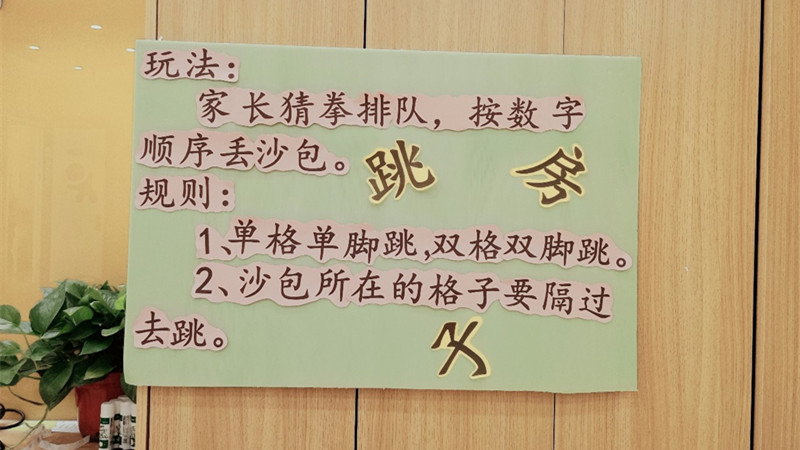 玩法：
家长猜拳排队，按数字
顺序丢沙包。
跳房
规则：
1、单格单脚跳，双格双脚跳。
2、沙包所在的格子要隔过
去跳。
子